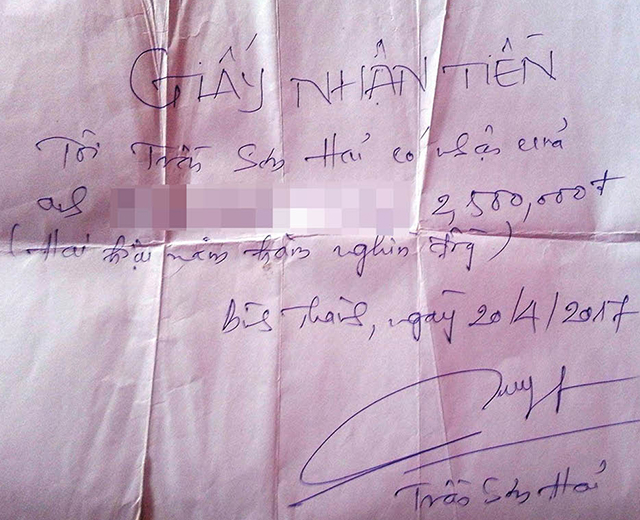 GIẤY NHẬN TIỀN
Tôi Trần Sơn Hải có nhận của
anh 2,500,000đ
(Hai triệu năm trăm nghìn đồng)
Bình Thạnh, ngày 20/4/2017
Trần Sơn Hải